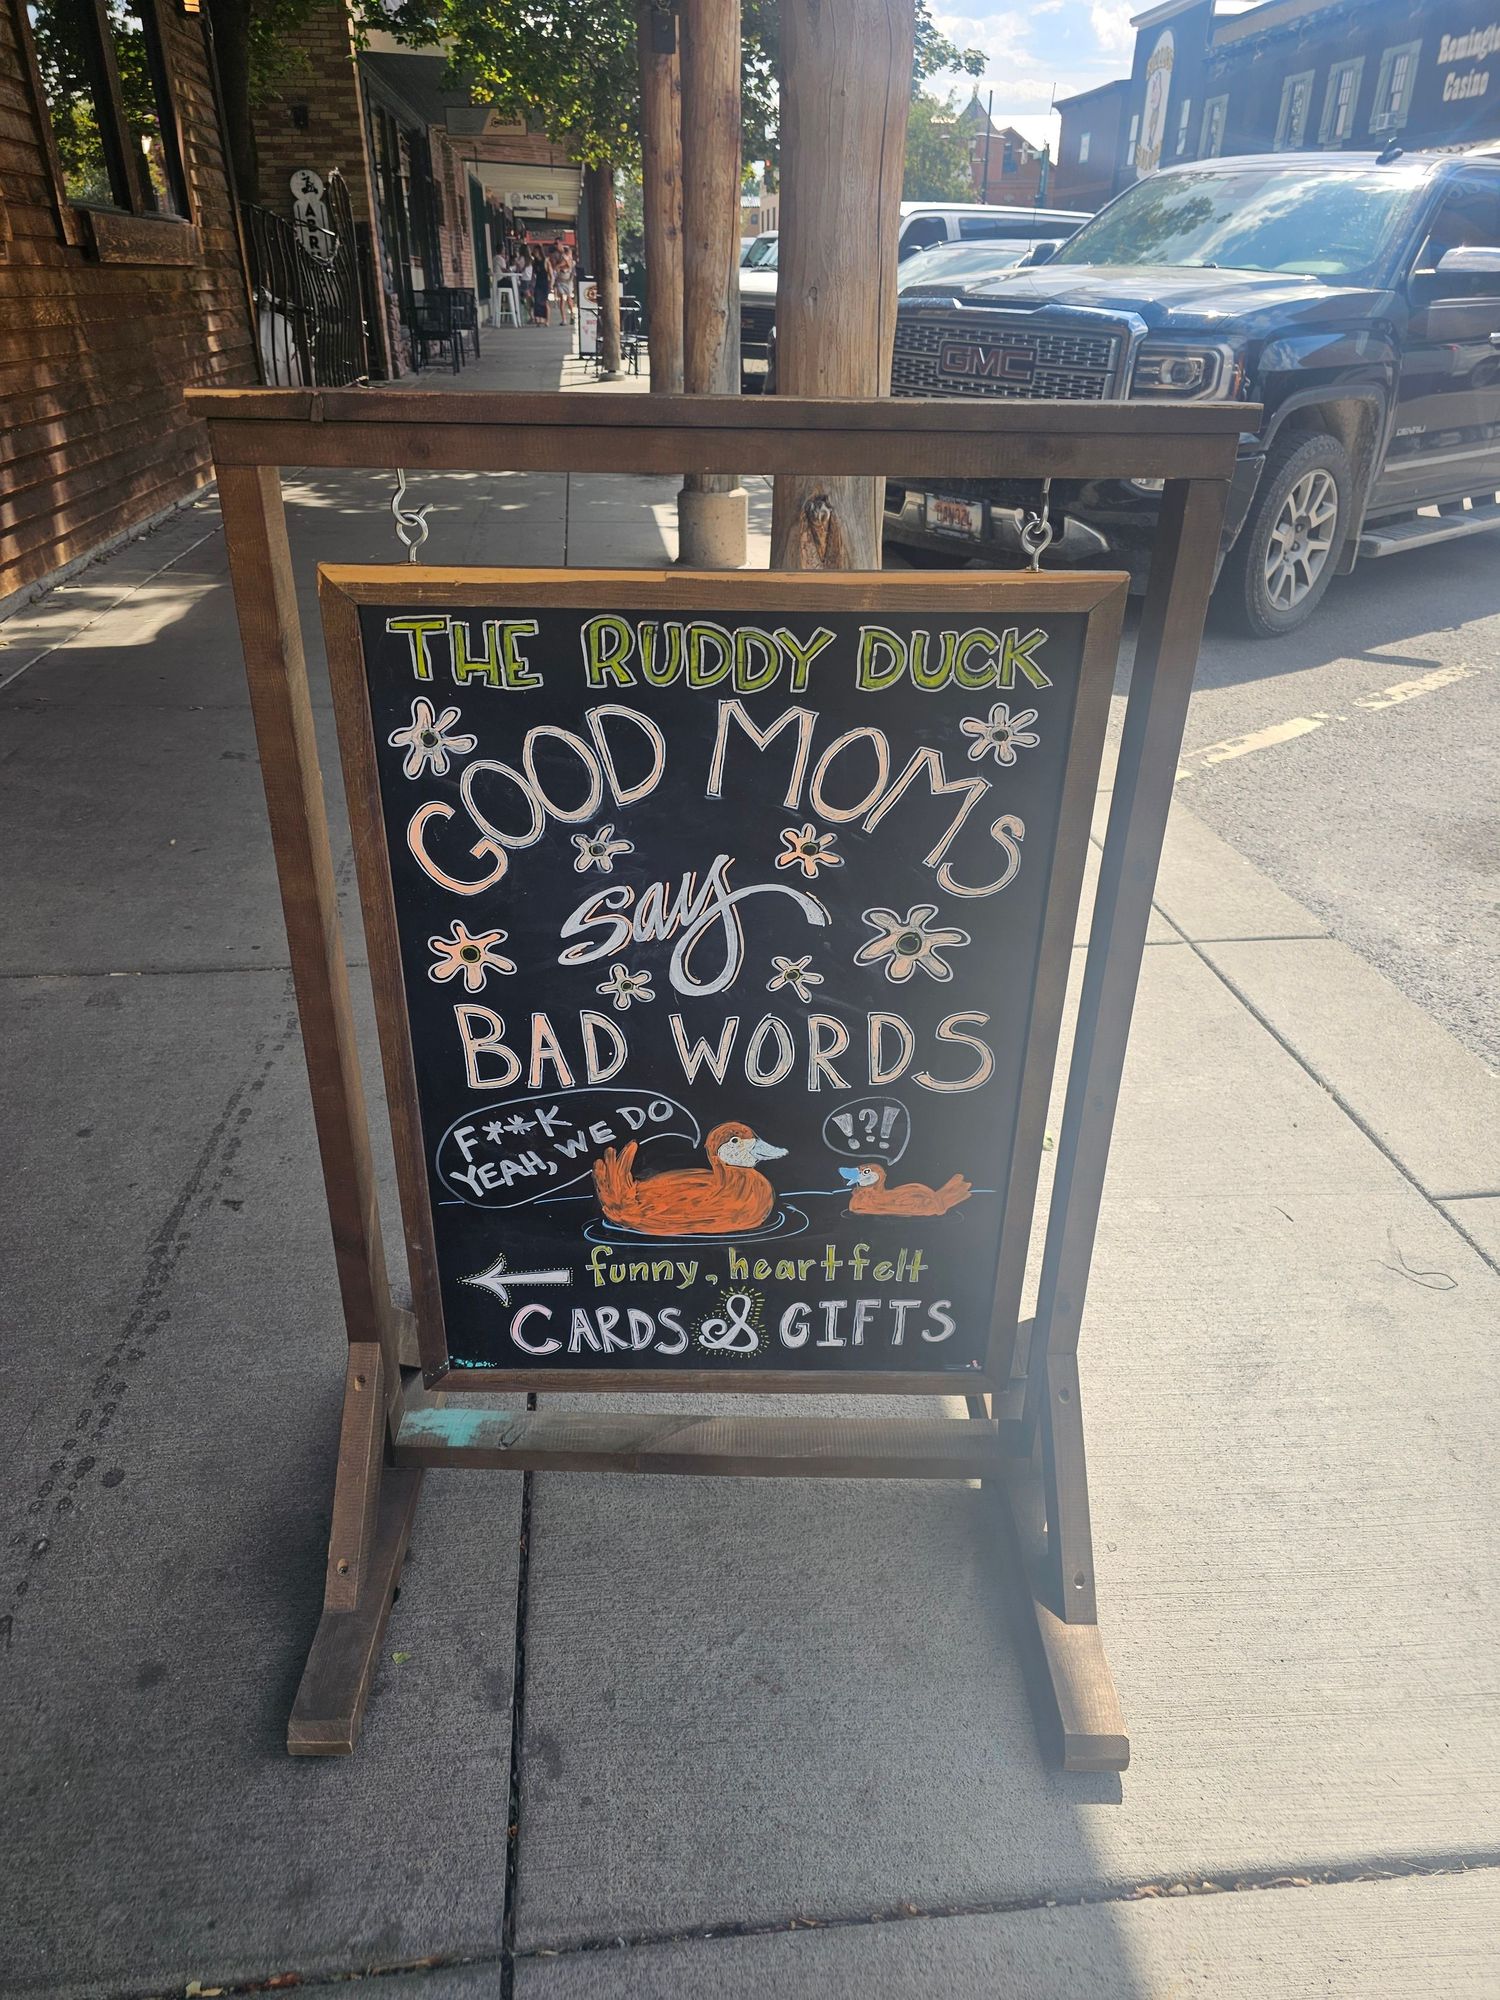 THE RUDDY DUCK
GOOD MOMS
say
BAD WORDS
F**K
YEAH, WE DO
!?!
funny, heartfelt
CARDS & GIFTS
HUCK'S
BAR
GMC
DENALI
Remington
Casino